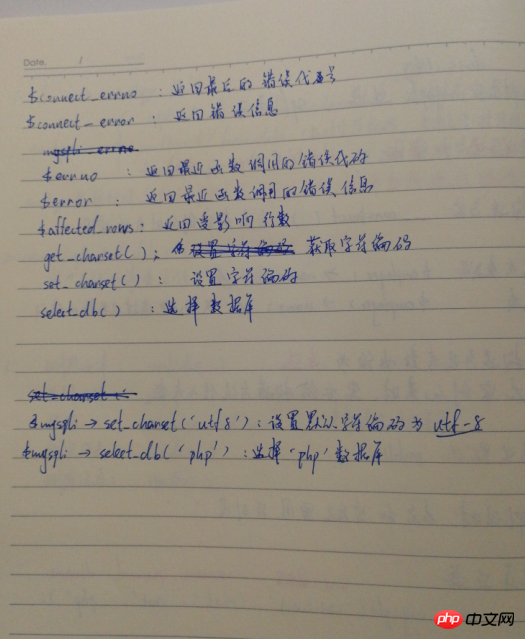 Date. /
$connect_errno : 返回最后的错误代码号
$connect_error : 返回错误信息
mysqli_errno
$errno : 返回最近函数调用的错误代码
$error : 返回最近函数调用的错误信息
$affected_rows: 返回受影响行数
get_charset(); 设置字符编码 获取字符编码
set_charset() : 设置字符编码
select_db() : 选择数据库
set_charset(
$mysqli → set_charset('utf8') : 设置默认字符编码为 utf-8
$mysqli → select_db('php') : 选择'php'数据库
php 中文网